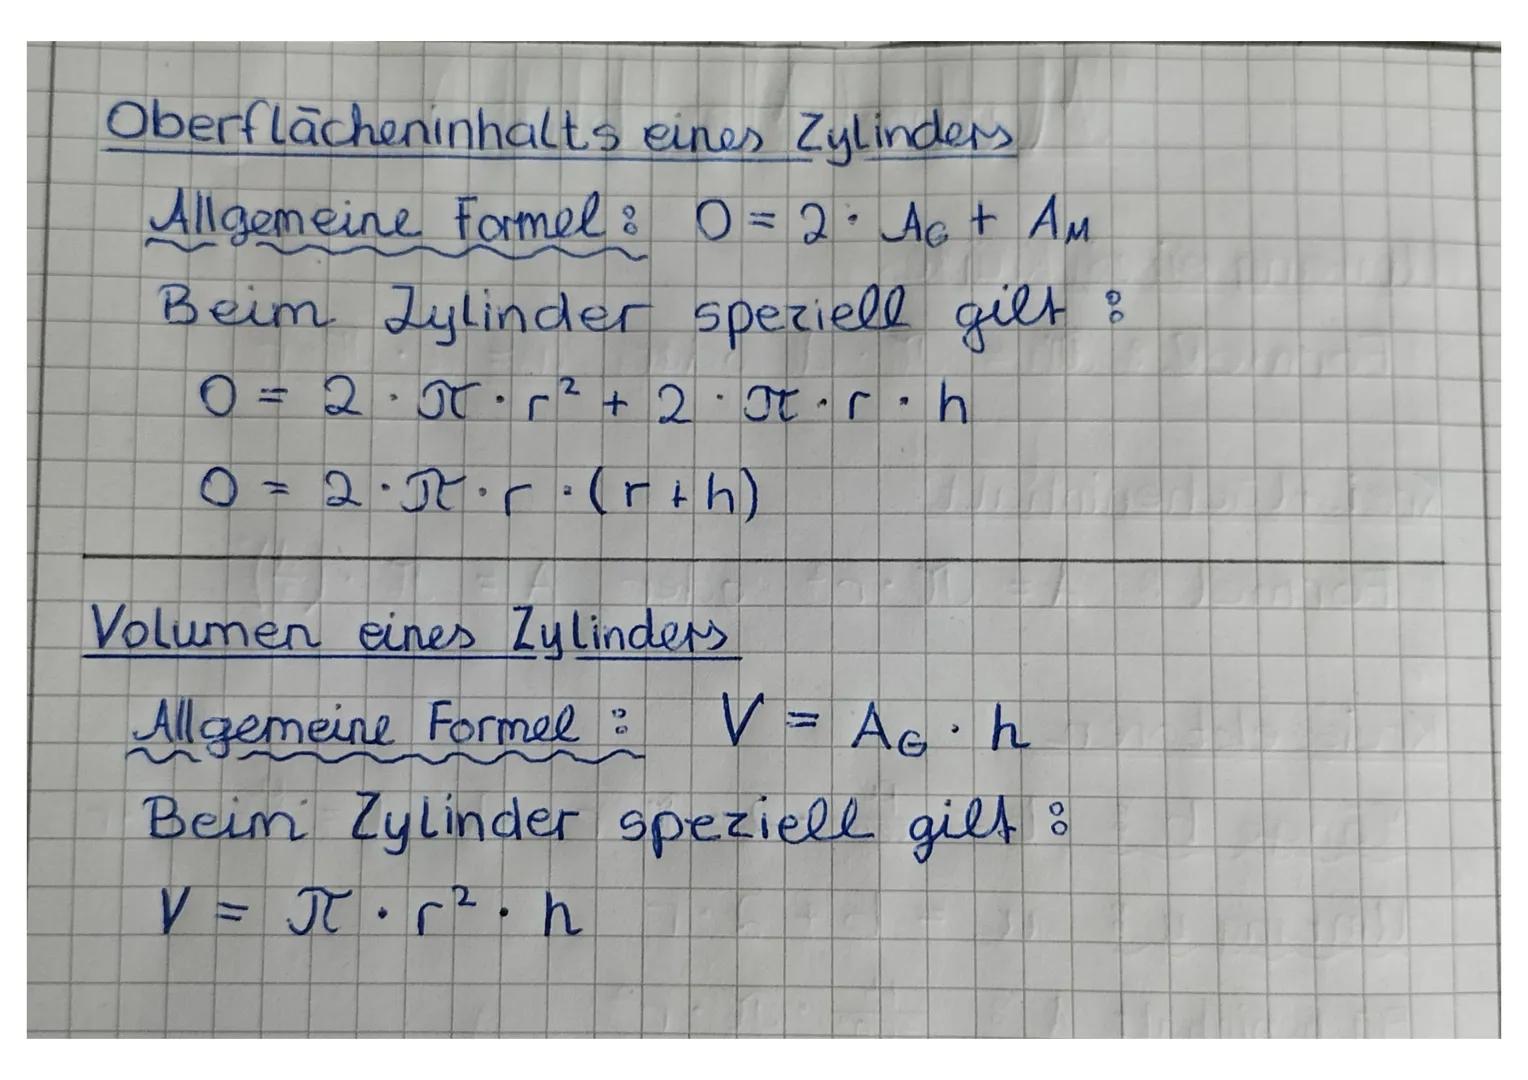 Oberflächeninhalts eines Zylinders
Allgemeine Formel: O = 2 · A_G + A_M
Beim Zylinder speziell gilt:
O = 2 · π · r² + 2 · π · r · h
O = 2 · π · r · (r + h)
Volumen eines Zylinders
Allgemeine Formel: V = A_G · h
Beim Zylinder speziell gilt:
V = π · r² · h